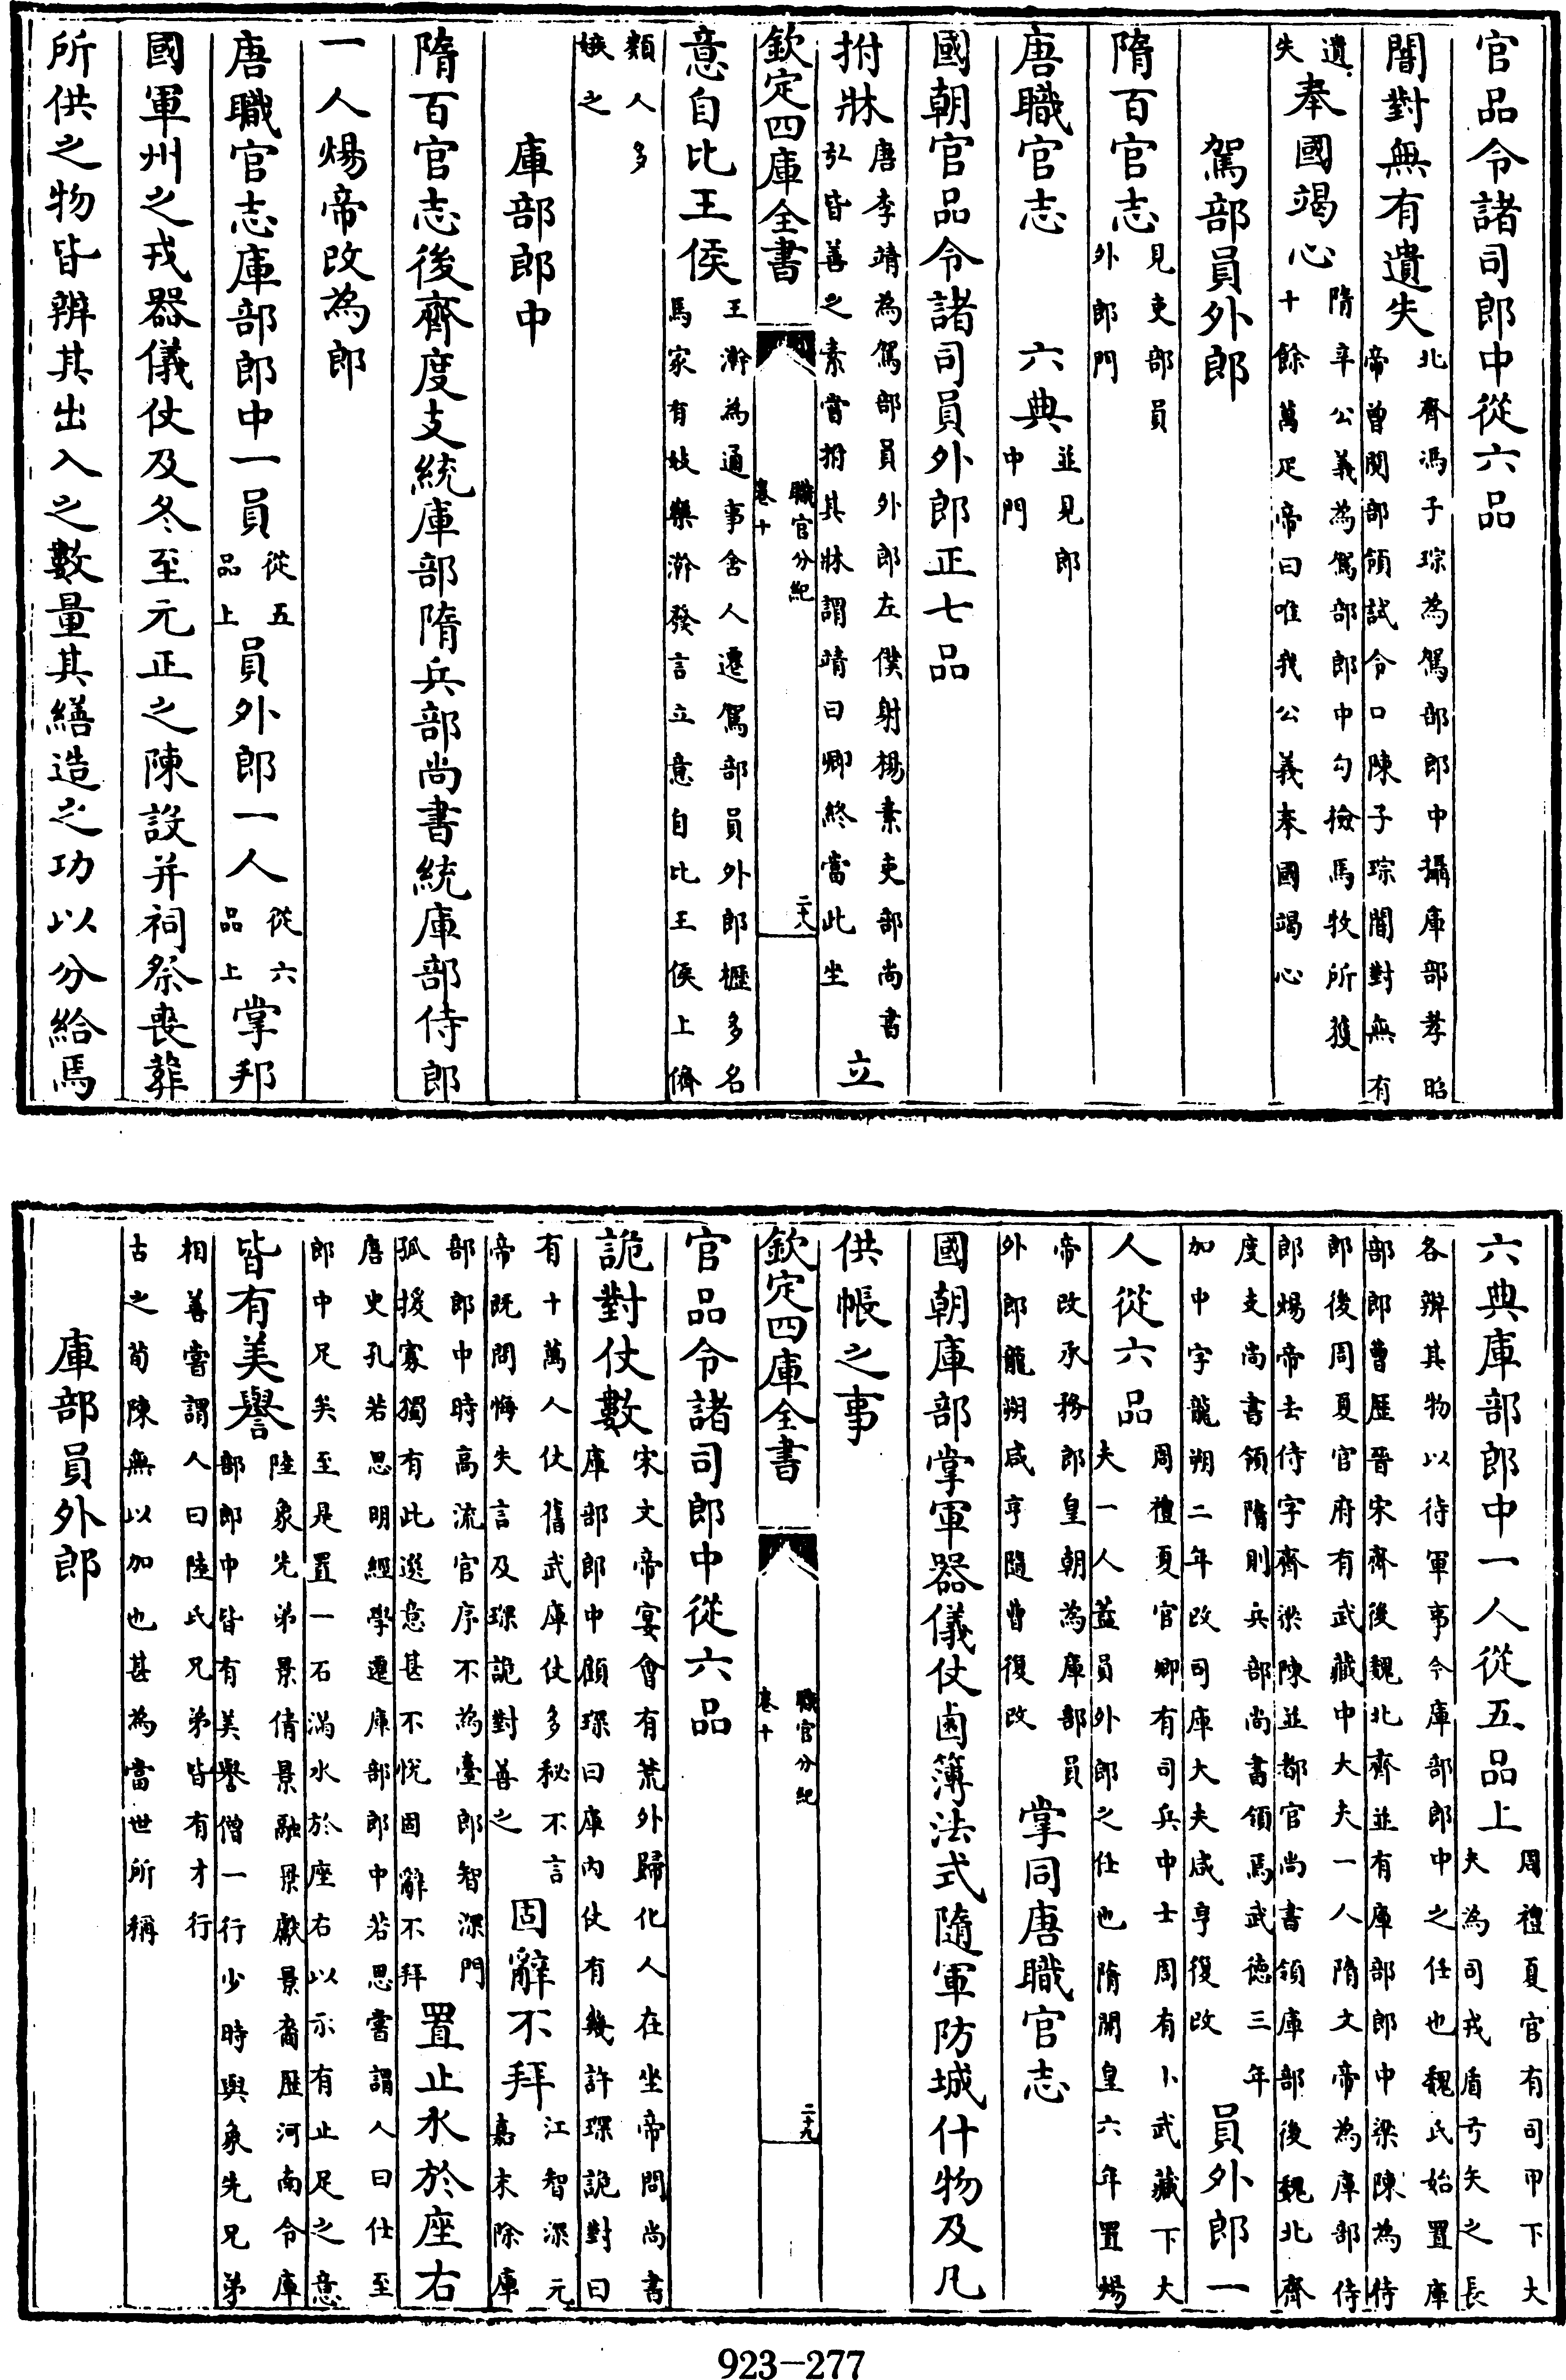 官品令諸司郎中從六品
闇對無有遺失北齊馮子琮為駕部郎中攝庫部孝昭帝曾閱部領試令口陳子琮闇對無有
遺失奉國竭心隋辛公義為駕部郎中勾檢馬牧所獲十餘萬疋帝曰唯我公義奉國竭心
駕部員外郎
隋百官志見吏部員外郎門
唐職官志 六典並見郎中門
國朝官品令諸司員外郎正七品
拊牀唐李靖為駕部員外郎左僕射楊素吏部尚書牛弘皆善之素嘗拊其牀謂靖曰卿終當此坐立
欽定四庫全書 職官分紀 卷十 二十八
意自比王侯王澣為通事舍人遷駕部員外郎櫪多名馬家有妓樂澣發言立意自比王侯上儕
類人多嫉之
庫部郎中
隋百官志後齊度支統庫部隋兵部尚書統庫部侍郎
一人煬帝改為郎
唐職官志庫部郎中一員從五品上員外郎一人從六品上掌邦
國軍州之戎器儀仗及冬至元正之陳設并祠祭喪葬
所供之物皆辨其出入之數量其繕造之功以分給焉
六典庫部郎中一人從五品上周禮夏官有司甲下大夫為司戎盾司弓矢之長
各辨其物以待軍事今庫部郎中之任也魏氏始置庫部郎曹歷晉宋齊後魏北齊並有庫部郎中梁陳為侍
郎後周夏官府有武藏中大夫一人隋文帝為庫部侍郎煬帝去侍字齊梁陳並都官尚書領庫部後魏北齊
度支尚書領隋則兵部尚書領焉武德三年加中字龍朔二年改司庫大夫咸亨復改員外郎一
人從六品周禮夏官卿有司兵中士周有小武藏下大夫一人蓋員外郎之任也隋開皇六年置煬
帝改承務郎皇朝為庫部員外郎龍朔咸亨隨曹復改掌同唐職官志
國朝庫部掌軍器儀仗鹵簿法式隨軍防城什物及凡
供帳之事
欽定四庫全書 職官分紀 卷十 二十九
官品令諸司郎中從六品
詭對仗數宋文帝宴會有荒外歸化人在坐帝問尚書庫部郎中顧琛曰庫內仗有幾許琛詭對曰
有十萬人仗舊武庫仗多秘不言帝既問悔失言及琛詭對善之固辭不拜江智深元嘉末除庫
部郎中時高流官序不為臺郎智深門孤援寡獨有此選意甚不悅固辭不拜置止水於座右
唐史孔若思明經學遷庫部郎中若思嘗謂人曰仕至郎中足矣至是置一石滿水於座右以示有止足之意
皆有美譽陸象先弟景倩景融景獻景裔歷河南令庫部郎中皆有美譽僧一行少時與象先兄弟
相善嘗謂人曰陸氏兄弟皆有才行古之荀陳無以加也甚為當世所稱
庫部員外郎
923-277